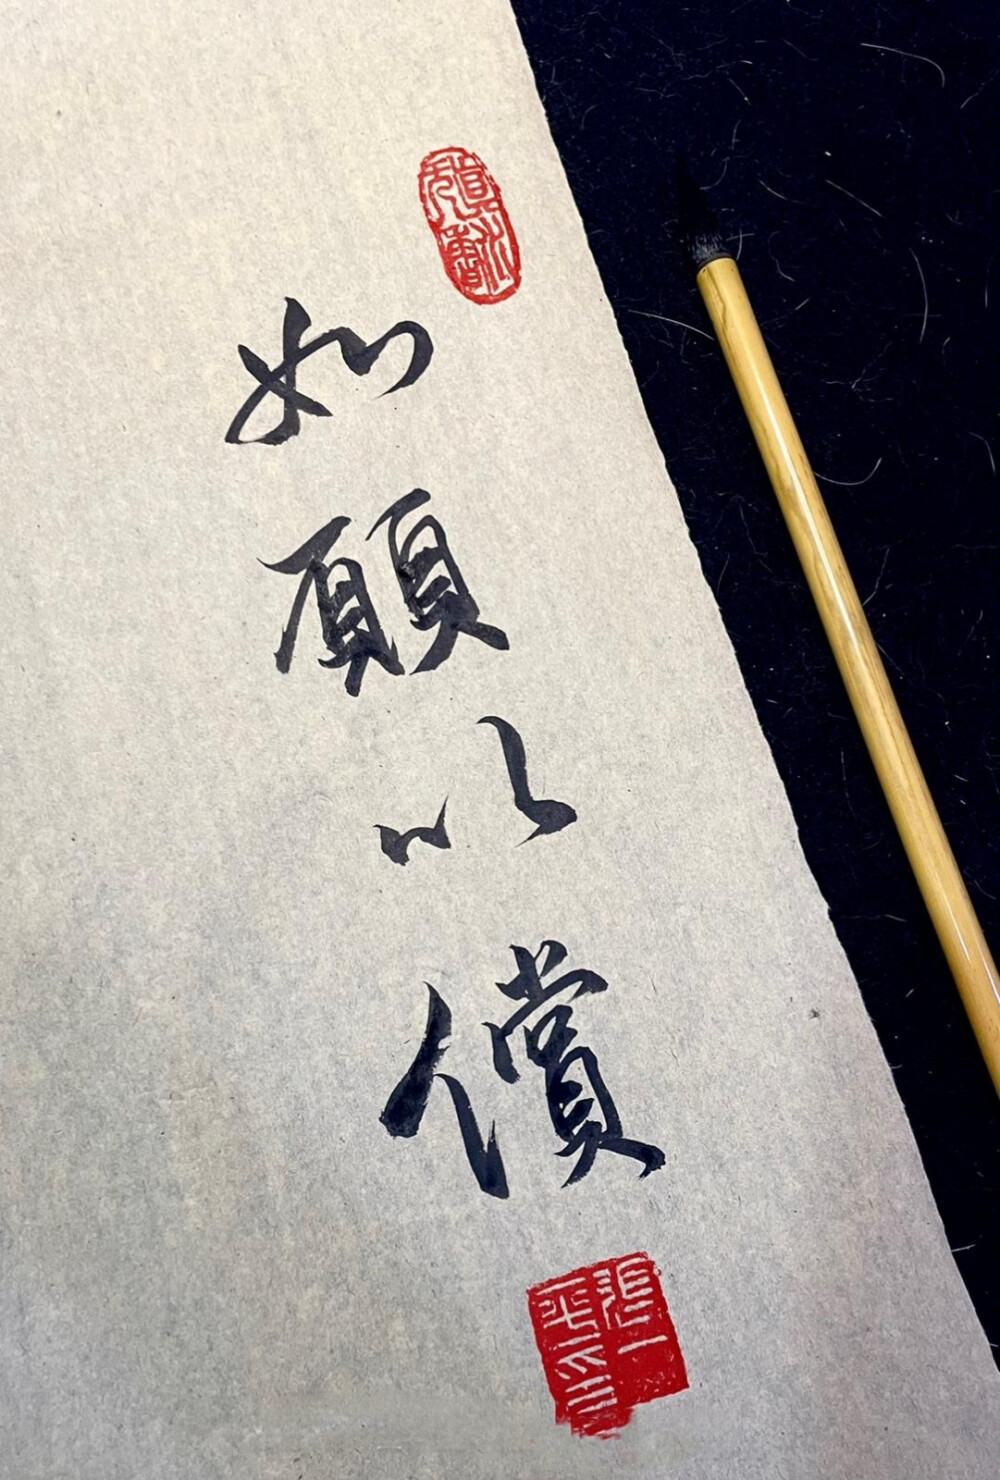 如願以償